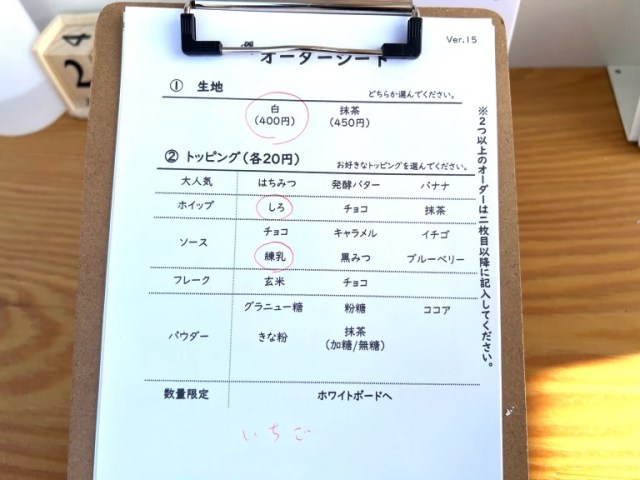 Ver.15
オーダーシート
① 生地
どちらか選んでください。
白 抹茶
(400円) (450円)
② トッピング(各20円)
お好きなトッピングを選んでください。
大人気 はちみつ 発酵バター バナナ
ホイップ しろ チョコ 抹茶
ソース チョコ キャラメル イチゴ
練乳 黒みつ ブルーベリー
フレーク 玄米 チョコ
パウダー グラニュー糖 粉糖 ココア
きな粉 抹茶
(加糖/無糖)
数量限定 ホワイトボードへ
いちご
※2つ以上のオーダーは二枚目以降に記入してください。
24